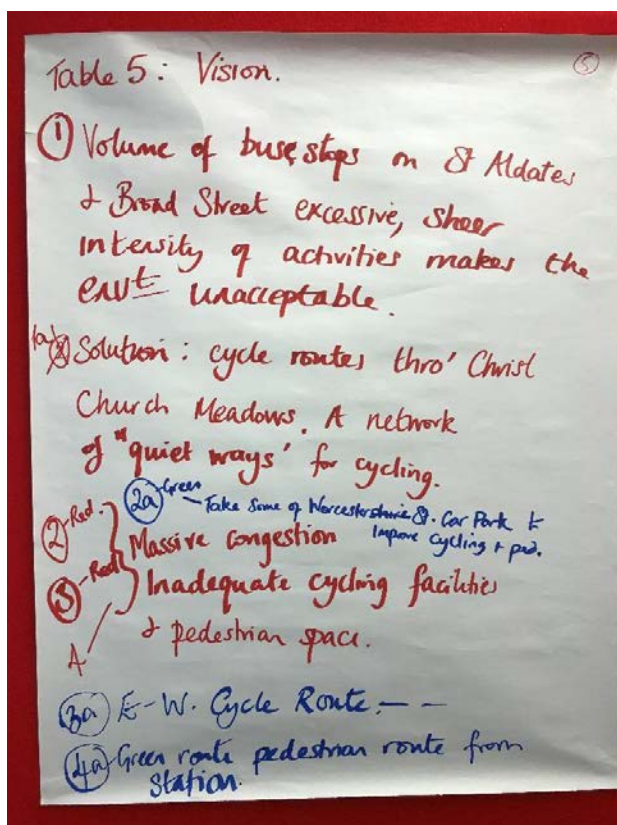 Table 5: Vision.
5
1 Volume of buses, stops on St Aldates
& Broad Street excessive, sheer
intensity of activities makes the
envt unacceptable.
(a) Solution: cycle routes thro' Christ
Church Meadows. A network
of "quiet ways' for cycling.
2a Green
- Take some of Worcestershire St. Car Park to
improve cycling + ped.
2 - Red.
Massive congestion
3 - Red
Inadequate cycling facilities
& pedestrian space.
A
3a E-W. Cycle Route. - -
4a Green route pedestrian route from
Station.